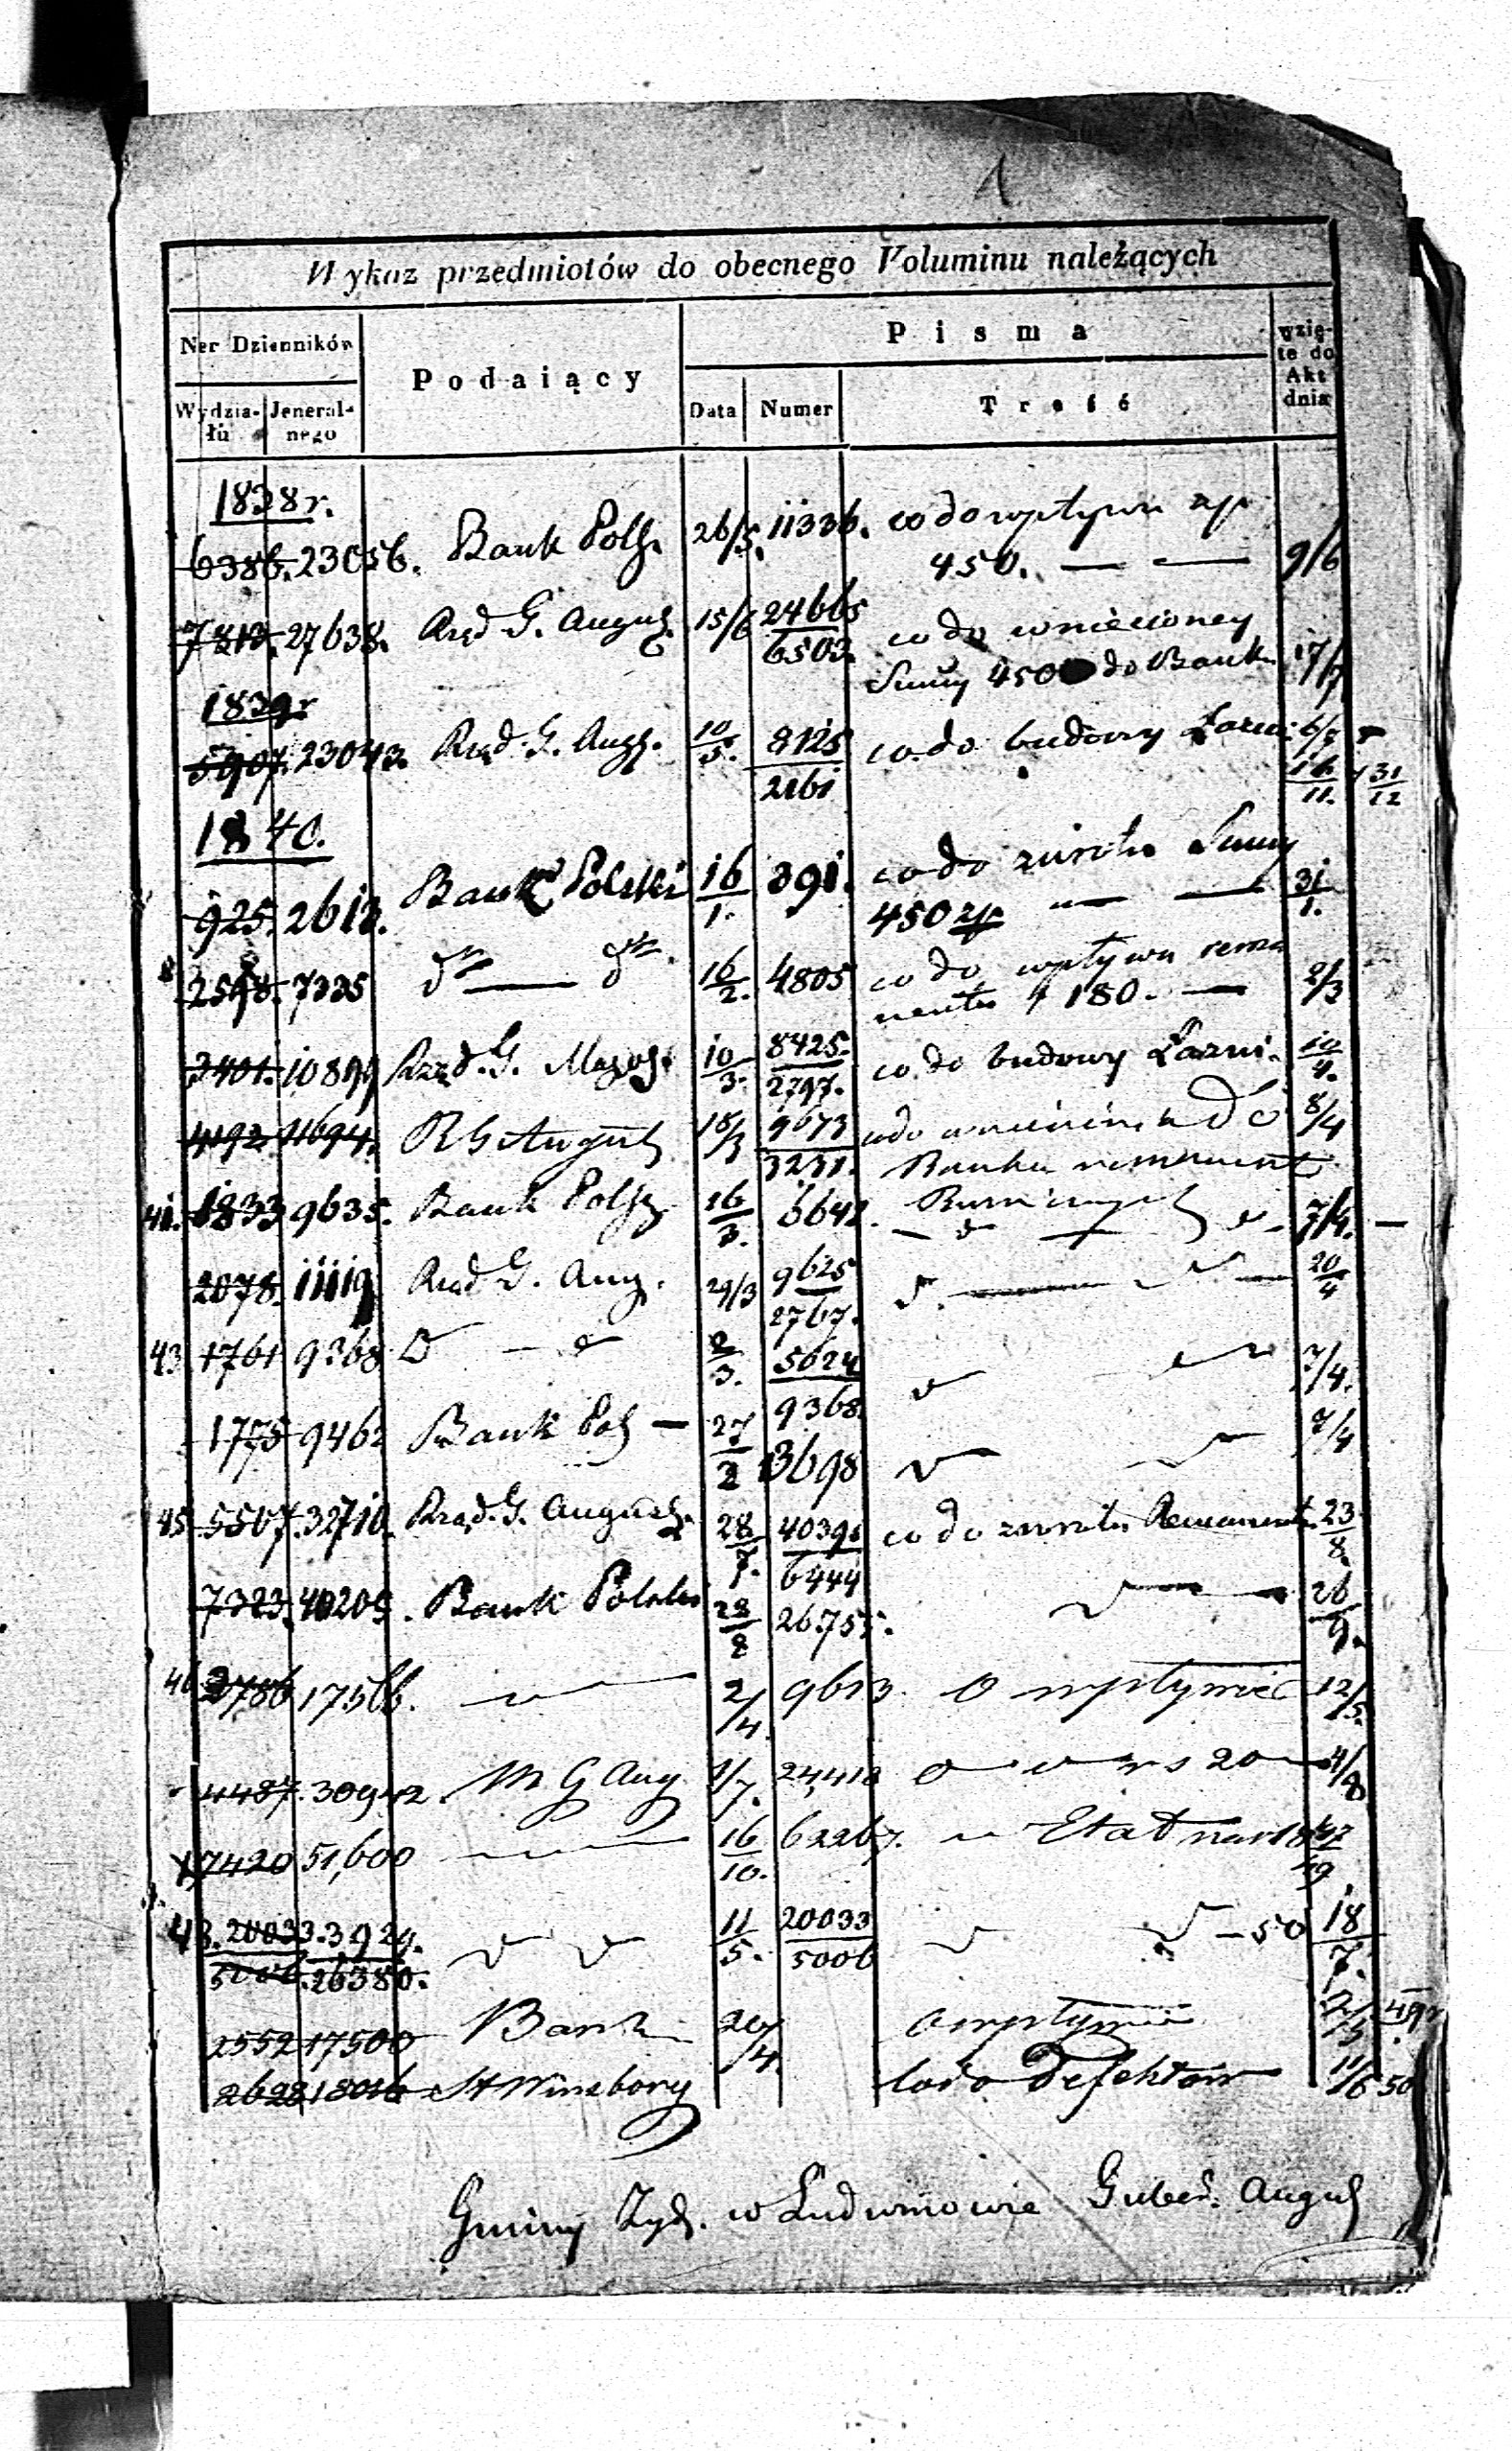 1
Wykaz przedmiotów do obecnego Voluminu należących
Ner Dzienników
Podaiący
Pisma
wzię-
te do
Akt
dnia
Wydzia-
łu
Jeneral-
nego
Data
Numer
Treść
1838r.
6386. 23056. Bank Pols. 26/5. 11336. co do wpływu zp
450. — — 9/6
7813. 27638. Rząd G. Augus. 15/6 24665
6503. co do wniesioney
Summy 450 do Banku 17/7
1839r
5907. 23043. Rząd. G. Augs. 10/5. 8125
2161 co do budowy Łazni 6/7
16/11. 31/12
1840.
925. 2612. Bank Polski 16/1. 391. co do zwrotu Summy
450 zp — — 31/1.
2598. 7335 dto — dto. 16/2. 4805 co do wpływu rema
nentu f 180. — 2/3
3401. 10899 Rząd. G. Mazos. 10/3. 8425.
2797. co do budowy Łazni. 10/4.
4192. 11694. R G August 18/3 9673
3231. co do wniesienia do
Banku remanent 8/4
41. 1833 9635. Bank Pols 16/3. 6642. 7/4. —
2078. 11119 Rząd G. Aug. 29/3 9625
2767. 20/4
43 1761 9368 2/3. 5624
9368. 7/4.
1775 9462 Bank Pols — 27/2 3698 7/4
45 5507. 32710. Rząd. G. Augus. 28/7. 40391
6444 co do zwrotu Remanent. 23/8.
7323. 40205. Bank Polski 28/8 26755. 26/9.
46 2786 17566. 2/4. 9613 O wpływie 12/5.
4487. 30942. R G Aug 1/7. 24,418 rs 20 4/8
17420 51,600 16/10. 62267. Etat na
48. 20033. 3929. 11/5. 20033 — 50 18/7.
5006. 26380. 5006
2552 17500 Bank 20/4. O wpływie 2/5 49
2628 18016 St Winsbory co do Defektow 11/6 50
Gminy Żyd. w Ludwinowie Guber. Augus